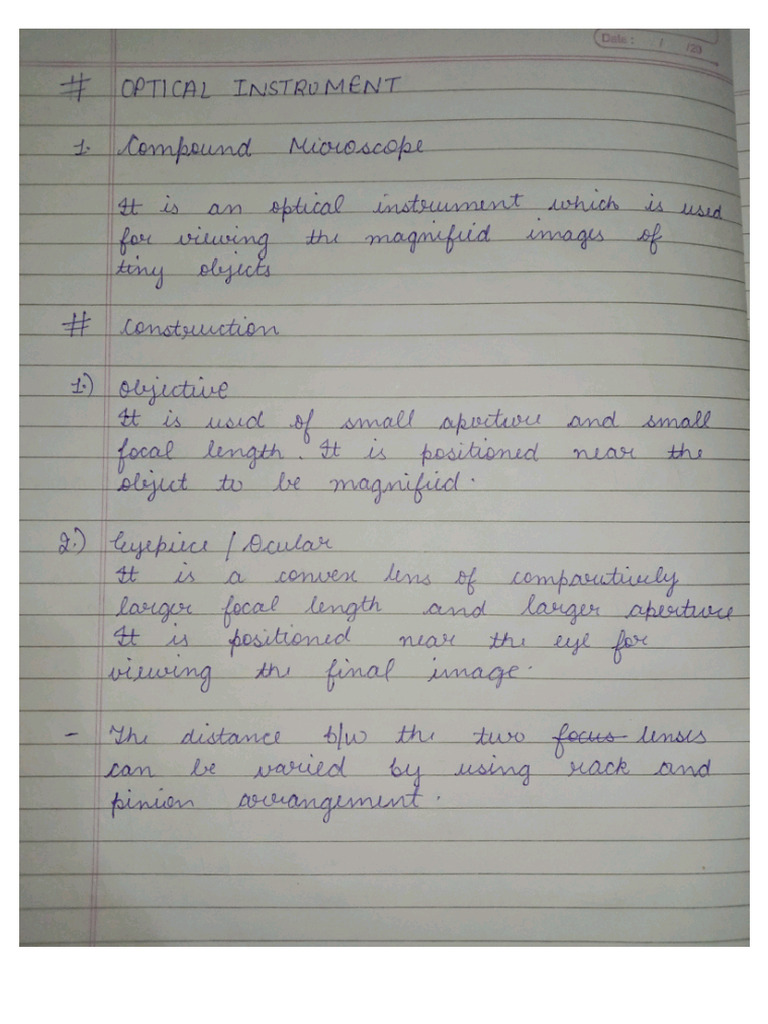 Date : / /20
# OPTICAL INSTRUMENT
1. Compound Microscope
It is an optical instrument which is used
for viewing the magnified images of
tiny objects
# Construction
1.) Objective
It is used of small aperture and small
focal length. It is positioned near the
object to be magnified.
2.) Eyepiece / Ocular
It is a convex lens of comparitively
larger focal length and larger aperture
It is positioned near the eye for
viewing the final image.
- The distance b/w the two focus lenses
can be varied by using rack and
pinion arrangement.